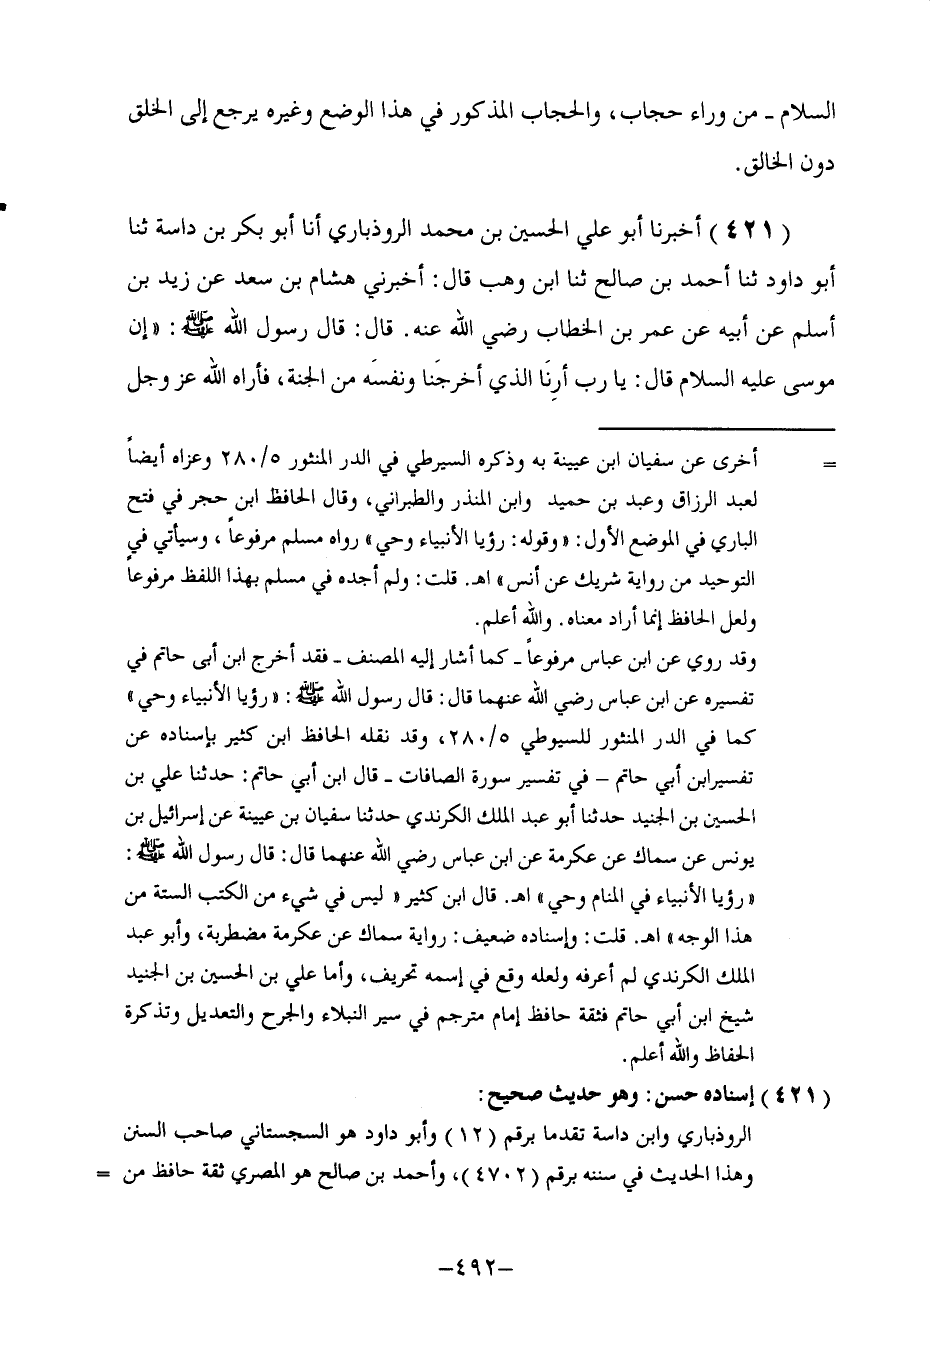 السلام ـ من وراء حجاب، والحجاب المذكور في هذا الوضع وغيره يرجع إلى الخلق
دون الخالق.
(٤٢١) أخبرنا أبو علي الحسين بن محمد الروذباري أنا أبو بكر بن داسة ثنا
أبو داود ثنا أحمد بن صالح ثنا ابن وهب قال: أخبرني هشام بن سعد عن زيد بن
أسلم عن أبيه عن عمر بن الخطاب رضي الله عنه. قال: قال رسول الله ﷺ: «إن
موسى عليه السلام قال: يا رب أرِنَا الذي أخرجَنا ونفسَه من الجنة، فأراه الله عز وجل
= أخرى عن سفيان ابن عيينة به وذكره السيرطي في الدر المنثور ٢٨٠/٥ وعزاه أيضاً
لعبد الرزاق وعبد بن حميد وابن المنذر والطبراني، وقال الحافظ ابن حجر في فتح
الباري في الموضع الأول: «وقوله: رؤيا الأنبياء وحي» رواه مسلم مرفوعاً، وسيأتي في
التوحيد من رواية شريك عن أنس» اهـ. قلت: ولم أجده في مسلم بهذا اللفظ مرفوعاً
ولعل الحافظ إنما أراد معناه. والله أعلم.
وقد روي عن ابن عباس مرفوعاً ـ كما أشار إليه المصنف ـ فقد أخرج ابن أبى حاتم في
تفسيره عن ابن عباس رضي الله عنهما قال: قال رسول الله ﷺ: «رؤيا الأنبياء وحي»
كما في الدر المنثور للسيوطي ٢٨٠/٥، وقد نقله الحافظ ابن كثير بإسناده عن
تفسيرابن أبي حاتم – في تفسير سورة الصافات ـ قال ابن أبي حاتم: حدثنا علي بن
الحسين بن الجنيد حدثنا أبو عبد الملك الكرندي حدثنا سفيان بن عيينة عن إسرائيل بن
يونس عن سماك عن عكرمة عن ابن عباس رضي الله عنهما قال: قال رسول الله ﷺ:
«رؤيا الأنبياء في المنام وحي» اهـ. قال ابن كثير « ليس في شيء من الكتب الستة من
هذا الوجه» اهـ. قلت: وإسناده ضعيف: رواية سماك عن عكرمة مضطربة، وأبو عبد
الملك الكرندي لم أعرفه ولعله وقع في إسمه تحريف، وأما علي بن الحسين بن الجنيد
شيخ ابن أبي حاتم فثقة حافظ إمام مترجم في سير النبلاء والجرح والتعديل وتذكرة
الحفاظ والله أعلم.
(٤٢١) إسناده حسن: وهو حديث صحيح:
الروذباري وابن داسة تقدما برقم (١٢) وأبو داود هو السجستاني صاحب السنن
وهذا الحديث في سننه برقم (٤٧٠٢)، وأحمد بن صالح هو المصري ثقة حافظ من =
–٤٩٢–